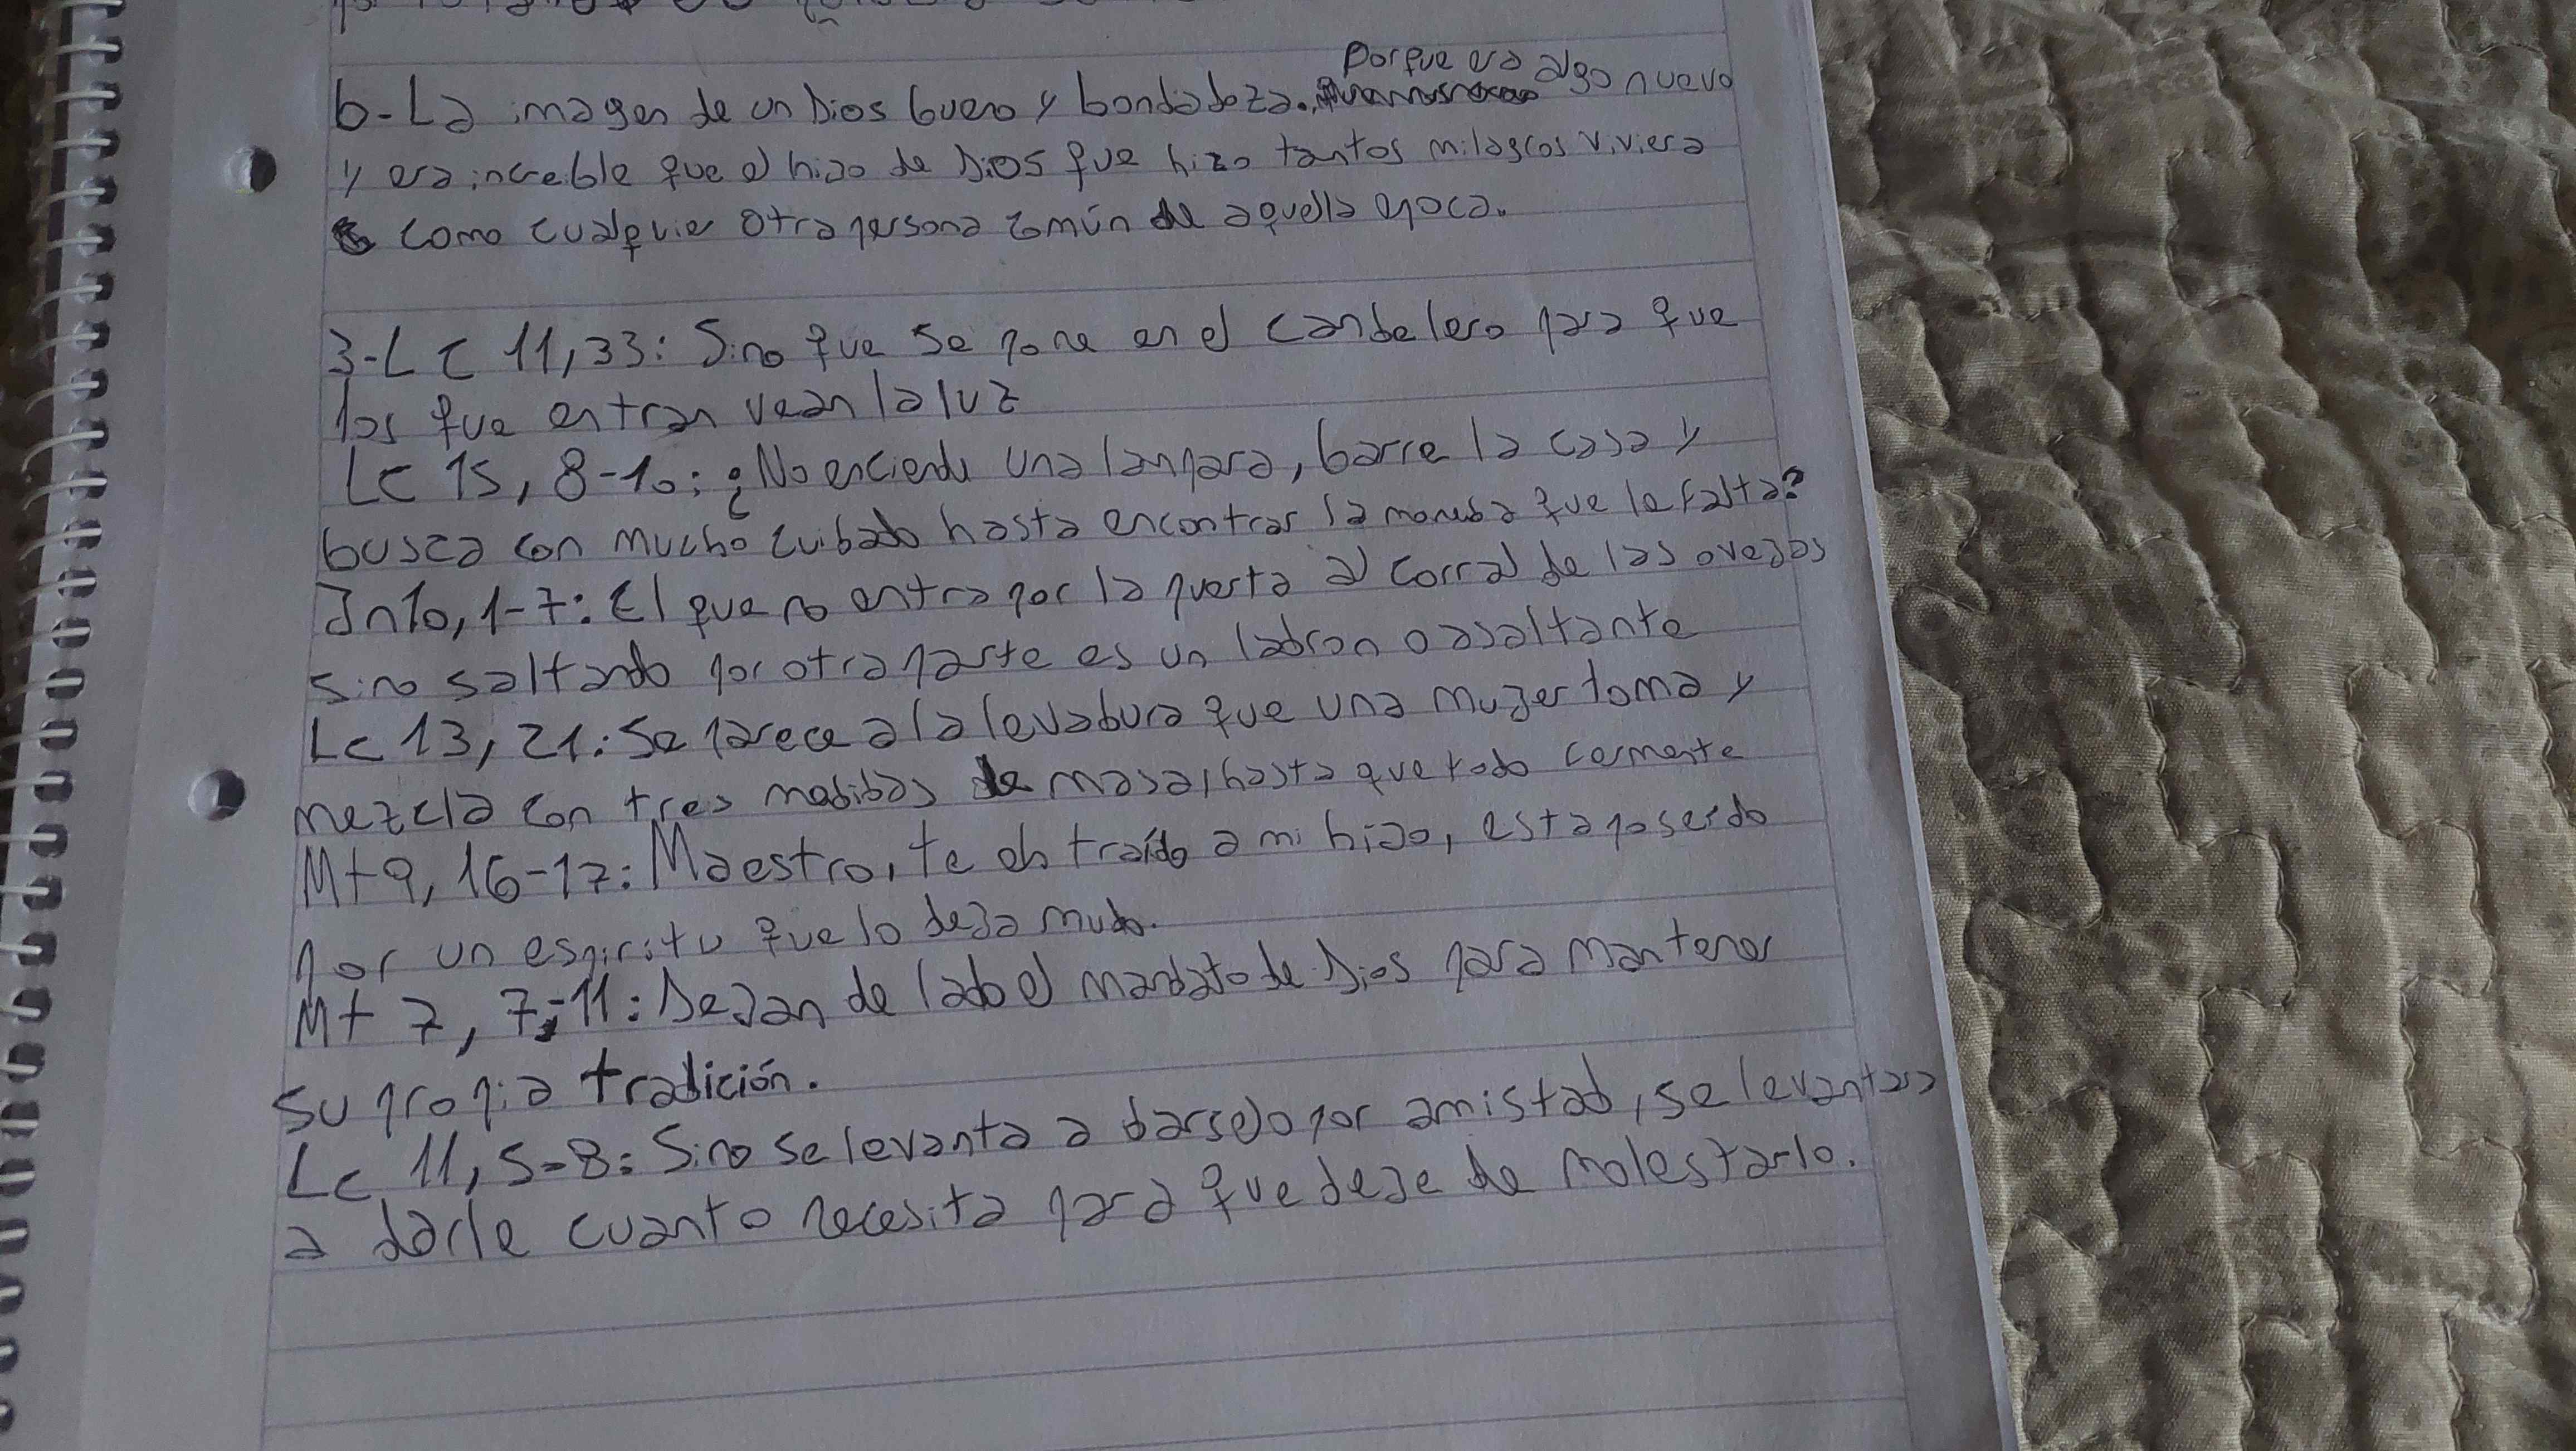 Porque era algo nuevo
b-La imagen de un Dios bueno y bondadoza.
y era increible que el hijo de Dios que hizo tantos milagros viviera
como cualquier otra persona común de aquella epoca.
3-Lc 11,33: Sino que se pone en el candelero para que
los que entran vean la luz
Lc 15, 8-10: ¿No enciende una lampara, barre la casa y
busca con mucho cuidado hasta encontrar la moneda que le falta?
Jn10,1-7: El que no entra por la puerta al corral de las ovejas
sino saltando por otra parte es un ladron o asaltante
Lc 13, 21: Se parece a la levadura que una mujer toma y
mezcla con tres medidas de masa, hasta que todo fermente
Mt 9, 16-17: Maestro, te eh traído a mi hijo, esta poseido
por un espiritu que lo deja mudo.
Mt 7, 7-11: Dejan de lado el mandato de Dios para mantener
su propia tradición.
Lc 11, 5-8: Si no se levanta a darselo por amistad, se levantara
a darle cuanto necesita para que deje de molestarlo.